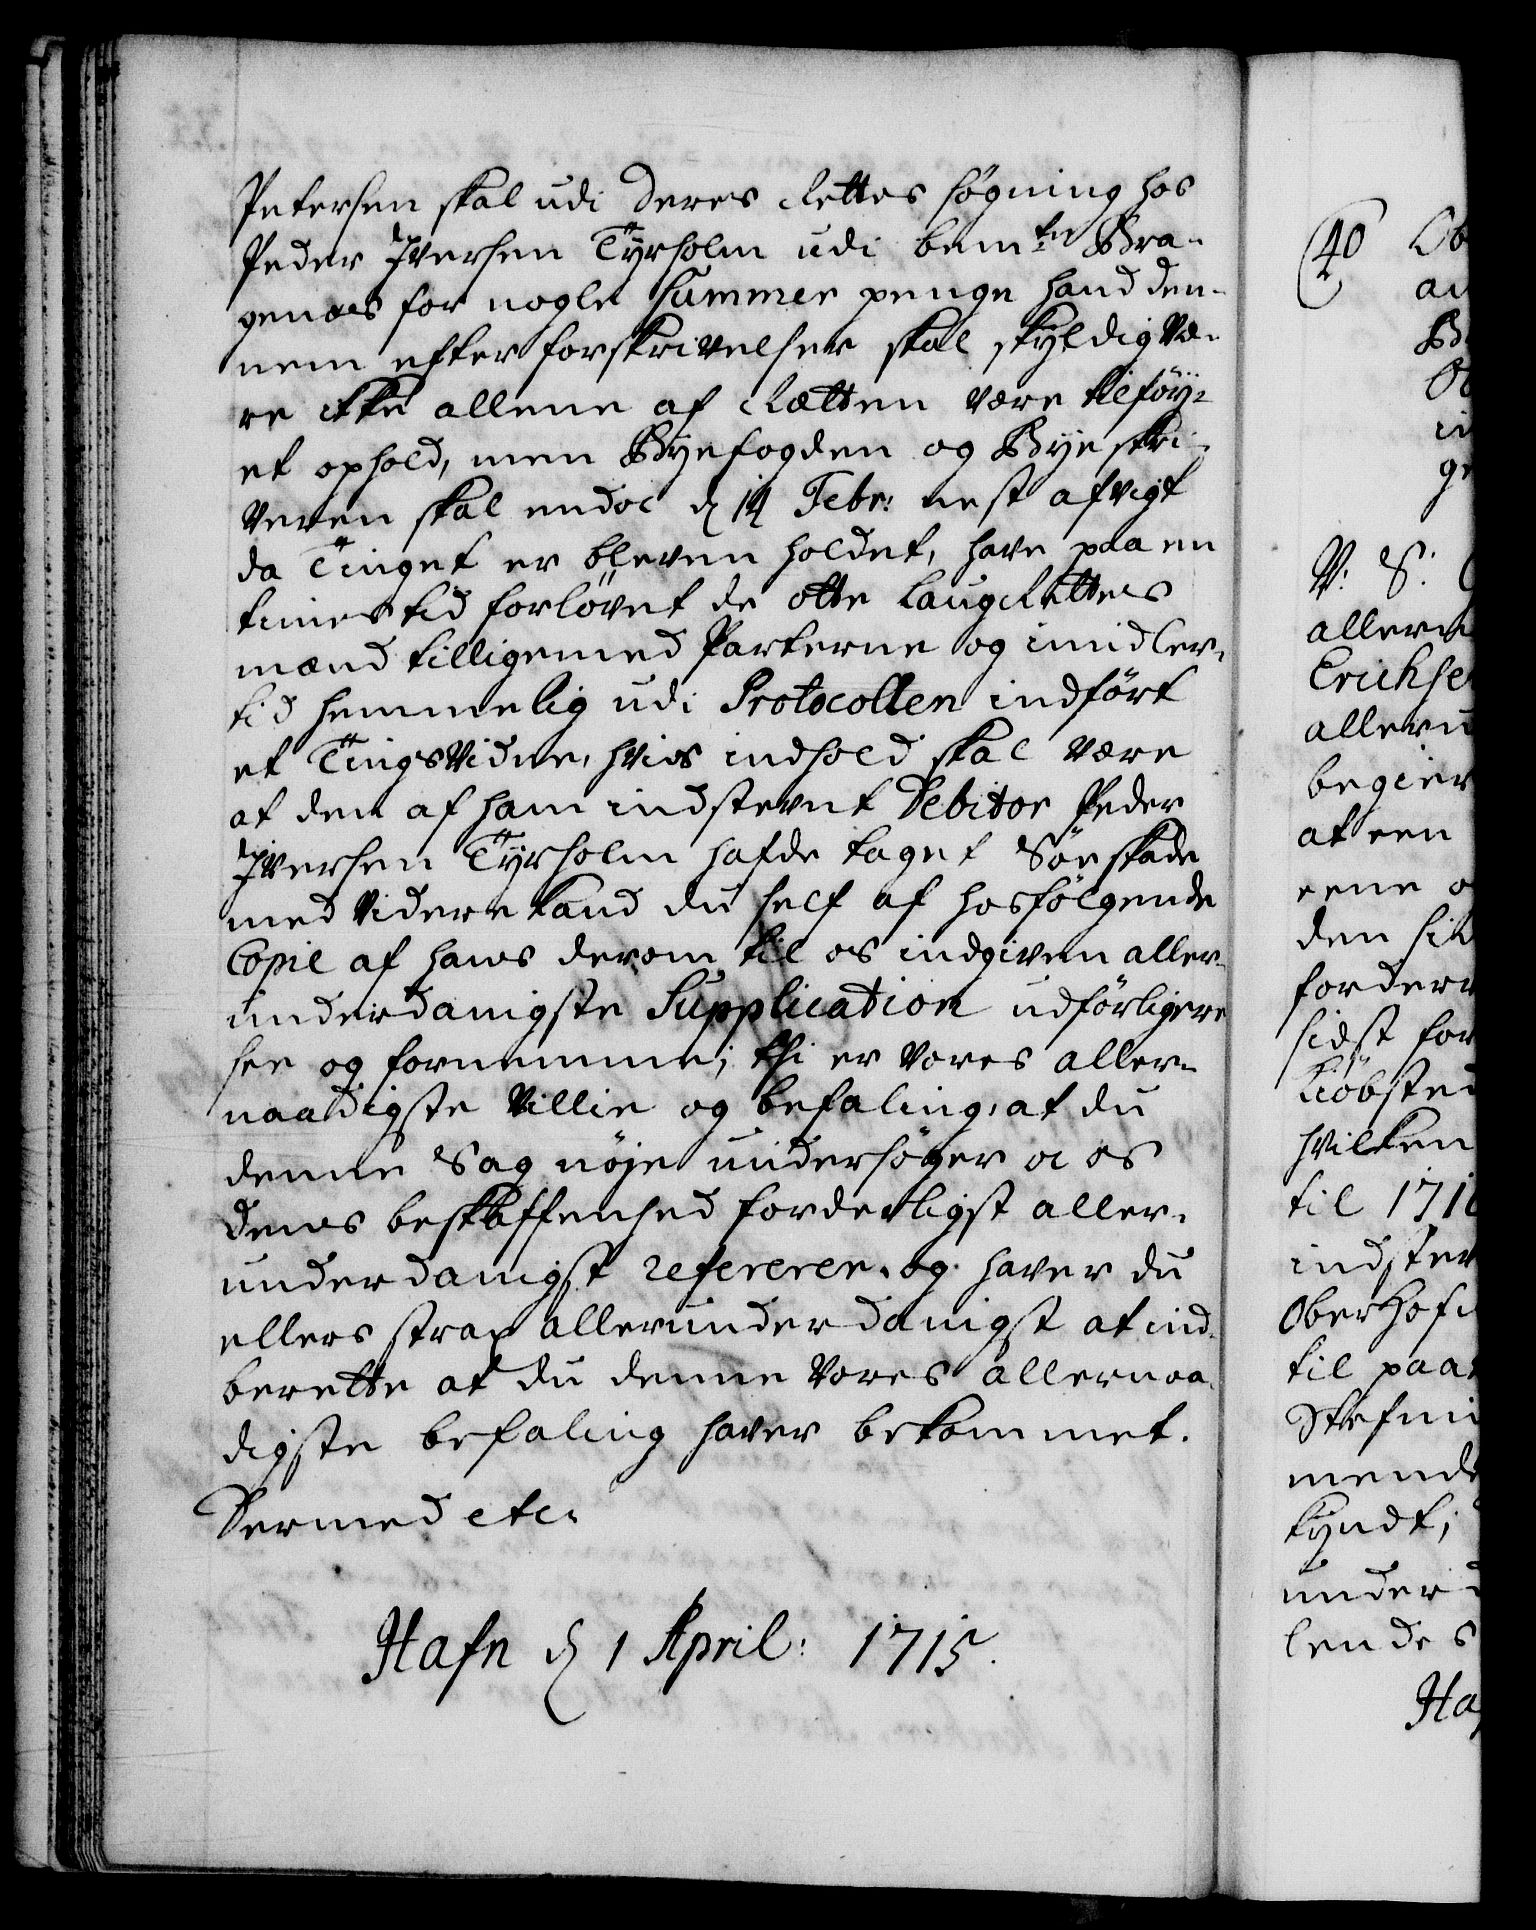 Petersen skal udi deres Rettes søgning hos
Peder Iversen Tyrholm udi bem:te Bra-
genæs for nogle Summer penge hand den-
nem efter forskrivelser skal skyldig væ-
re ikke allene af Rætten være tilføy-
et ophold, men Byefogden og Byeskri-
veren skal endoc d 14 Febr: nest afvigt
da Tinget er bleven holdet, have paa en
times tid forløvet de otte Laugrettes
mænd tilligemed Parterne og imidler-
tid hemmelig udi Protocollen indført
et Tingsvidne, hvis indhold skal være
at den af ham indstevnt Debitor Peder
Iversen Tyrholm hafde taget Søeskade
med videre kand du self af hosfølgende
Copie af hans derom til os indgiven aller-
underdanigste Supplication udførligere
see og fornemme; thi er vores aller-
naadigste Villie og befaling, at du
denne Sag nøje undersøger oc os
dens beskaffenhed forderligst aller-
underdanigst referere. og haver du
ellers strax allerunderdanigst at ind-
berette at du denne vores allernaa-
digste befaling haver bekommet.
Dermed etc.
Hafn d 1 April: 1715.
40 Ob
an
B
in
ge
V: S:
allern
Erichse
alleru
begier
at een
eene o
den sid
fordere
sidst for
Kiøbsted
hvilken
til 171
indstev
Oberhof
til paa
Stefni
mende
kyndt;
under d
lendes
Ha